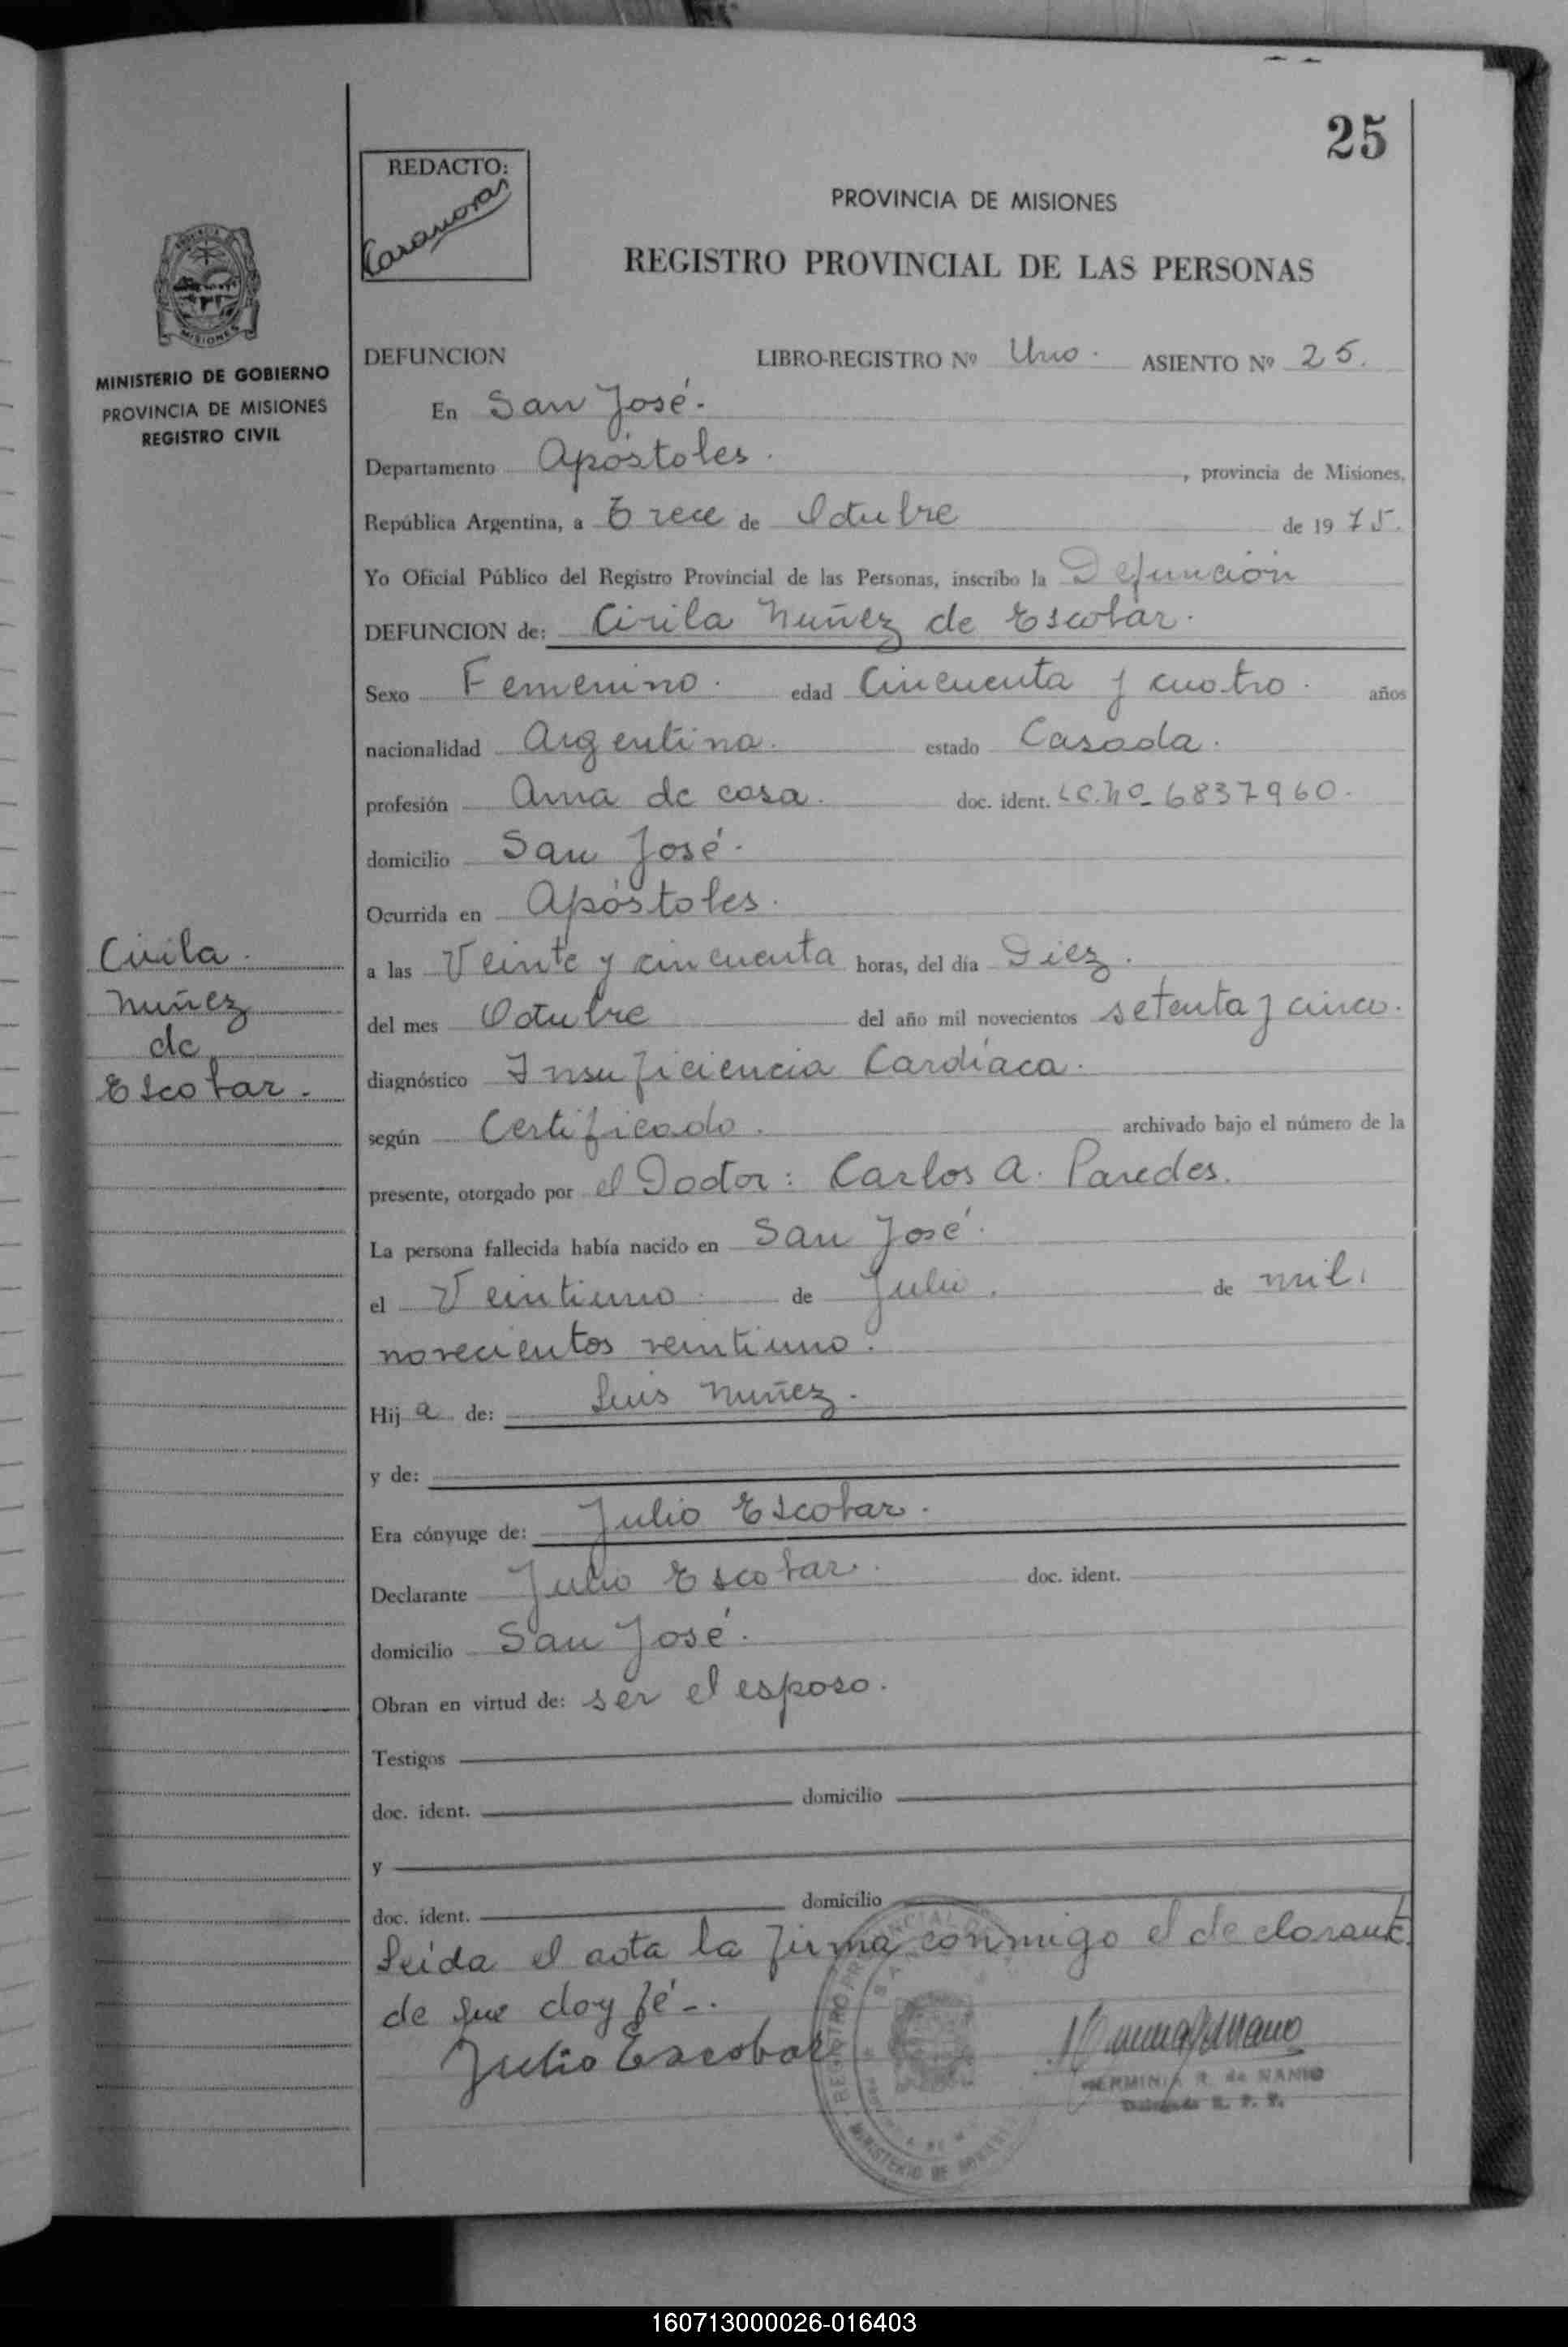 25
REDACTO:
Casanovas
PROVINCIA DE MISIONES
REGISTRO PROVINCIAL DE LAS PERSONAS
MISIONES
MINISTERIO DE GOBIERNO
PROVINCIA DE MISIONES
REGISTRO CIVIL
DEFUNCION LIBRO-REGISTRO Nº Uno. ASIENTO Nº 25.
En San José.
Departamento Apóstoles. , provincia de Misiones,
República Argentina, a Trece de Octubre de 1975.
Yo Oficial Público del Registro Provincial de las Personas, inscribo la Defunción
DEFUNCION de: Cirila Nuñez de Escobar.
Sexo Femenino. edad Cincuenta y cuatro. años
nacionalidad Argentina. estado Casada.
profesión Ama de casa. doc. ident. LC.Nº 6837960.
domicilio San José.
Ocurrida en Apóstoles.
a las Veinte y cincuenta horas, del día Diez.
del mes Octubre del año mil novecientos setenta y cinco.
diagnóstico Insuficiencia Cardíaca.
según Certificado. archivado bajo el número de la
presente, otorgado por el Doctor: Carlos A. Paredes.
La persona fallecida había nacido en San José.
el Veintiuno. de Julio. de mil.
novecientos veintiuno.
Hija de: Luis Nuñez.
y de:
Era cónyuge de: Julio Escobar.
Declarante Julio Escobar. doc. ident.
domicilio San José.
Obran en virtud de: ser el esposo.
Testigos
doc. ident. domicilio
y
doc. ident. domicilio
Leida el acta la firma conmigo el declarante.
de que doy fé-.
Julio Escobar
HERMINIA R. de NANIO
Delegada R. P. P.
Cirila.
Nuñez
de
Escobar.
160713000026-016403